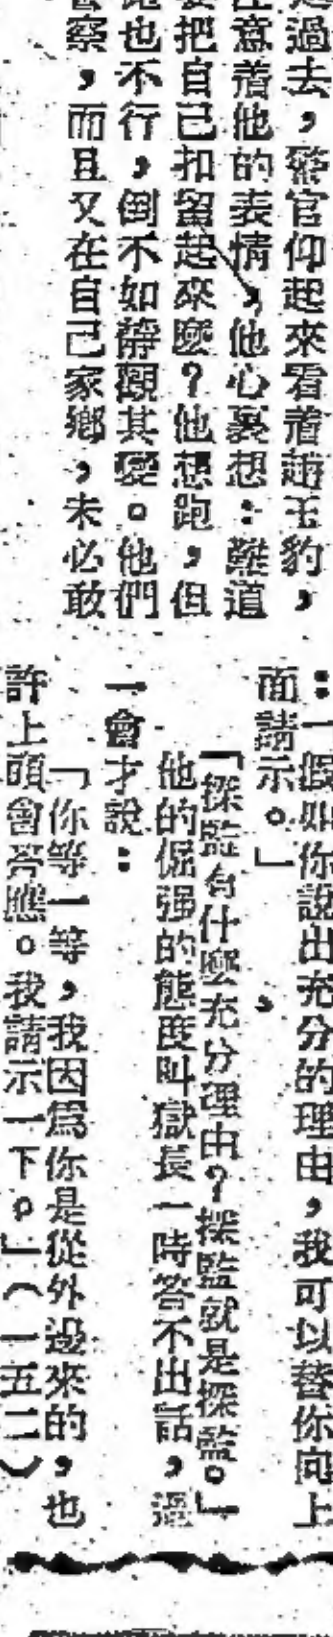 過去，警官仰起來看着趙玉豹，
意着他的表情，他心裏想：難道
把自己扣留起來麽？他想跑，但
也不行，倒不如靜觀其變。他們
察，而且又在自己家鄉，未必敢
：「假如你說出充分的理由，我可以替你向上
面請示。」
「探監有什麽充分理由？探監就是探監。」
他的倔强的態度叫獄長一時答不出話，過
一會才說：
「你等一等，我因爲你是從外邊來的，也
許上頭會答應。我請示一下。」（一五二）